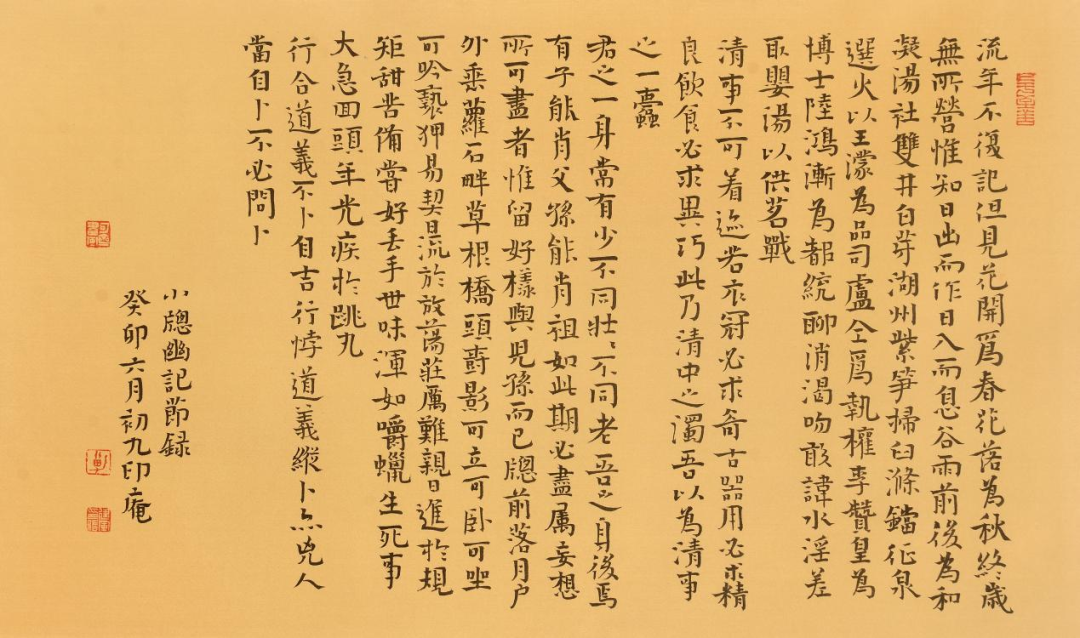 流年不復記但見花開為春花落為秋終歲
無所營惟知日出而作日入而息谷雨前後為和
凝湯社雙井白芽湖州紫筍掃臼滌鐺征泉
選火以王濛為品司盧仝為執權李贊皇為
博士陸鴻漸為都統聊消渴吻敢諱水淫差
取嬰湯以供茗戰
清事不可着迹若衣冠必求奇古器用必求精
良飲食必求異巧此乃清中之濁吾以為清事
之一蠹
君之一身常有少不同壯壯不同老吾之身後焉
有子能肖父孫能肖祖如此期必盡屬妄想
所可盡者惟留好樣與兒孫而已牕前落月戶
外垂蘿石畔草根橋頭樹影可立可卧可坐
可吟褻狎易契日流於放蕩莊厲難親日進於規
矩甜苦備嘗好丟手世味渾如嚼蠟生死事
大急回頭年光疾於跳丸
行合道義不卜自吉行悖道義縱卜亦兇人
當自卜不必問卜
小牕幽記節録
癸卯六月初九印庵